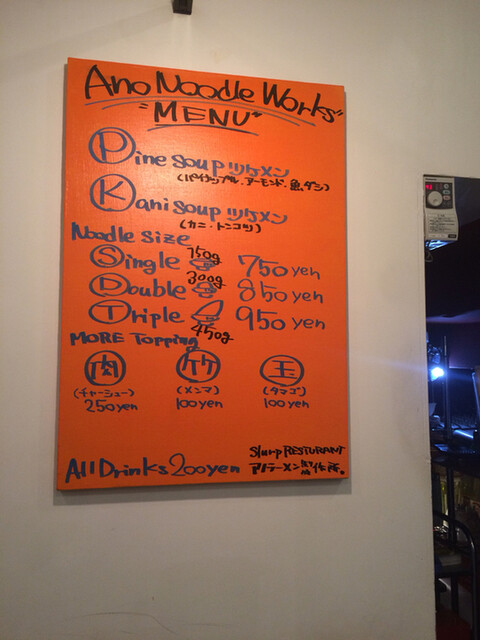 Ano Noodle Works
"MENU"
Pine Soup ツケメン
(パイナップル・アーモンド・魚ダシ)
Kani Soup ツケメン
(カニ・トンコツ)
Noodle Size
Single 150g 750yen
Double 300g 850yen
Triple 450g 950yen
MORE Topping
肉 竹 玉
(チャーシュー) (メンマ) (タマゴ)
250yen 100yen 100yen
All Drinks 200yen
Slurp RESTURANT
アノラーメン製作所。